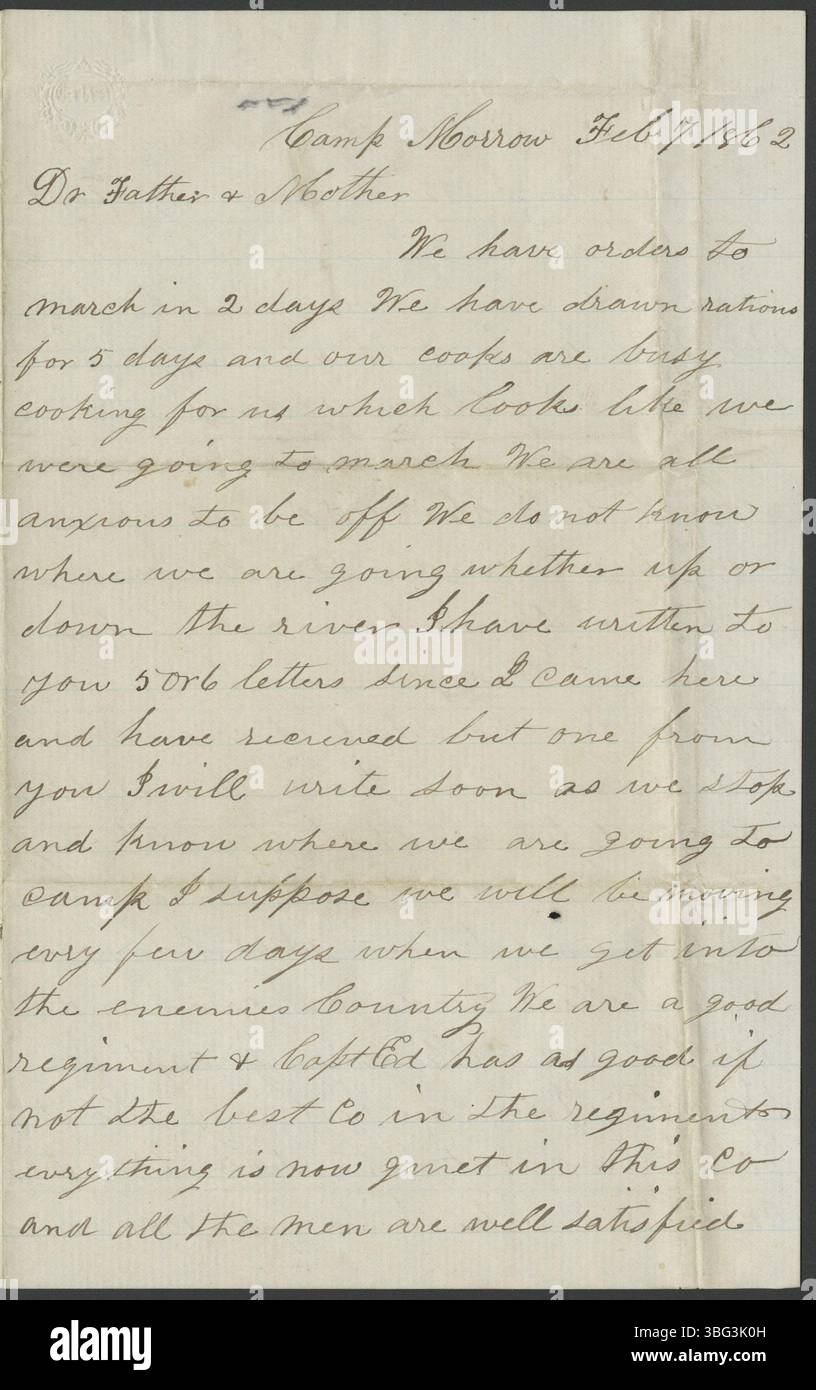 Camp Morrow Feb 7 1862
Dr Father & Mother
We have orders to
march in 2 days We have drawn rations
for 5 days and our cooks are busy
cooking for us which looks like we
were going to march We are all
anxious to be off We do not know
where we are going whether up or
down the river I have written to
you 5 or 6 letters since I came here
and have recieved but one from
you I will write soon as we stop
and know where we are going to
camp I suppose we will be moving
evry few days when we get into
the enemies Country We are a good
regiment & Capt Ed has as good if
not the best Co in the regiment
evrything is now quiet in this Co
and all the men are well satisfied
alamy
Image ID: 3BG3K0H
www.alamy.com